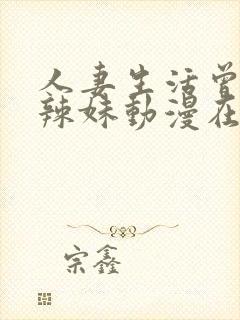 人妻生活曾
辣妹動漫在
宗鑫